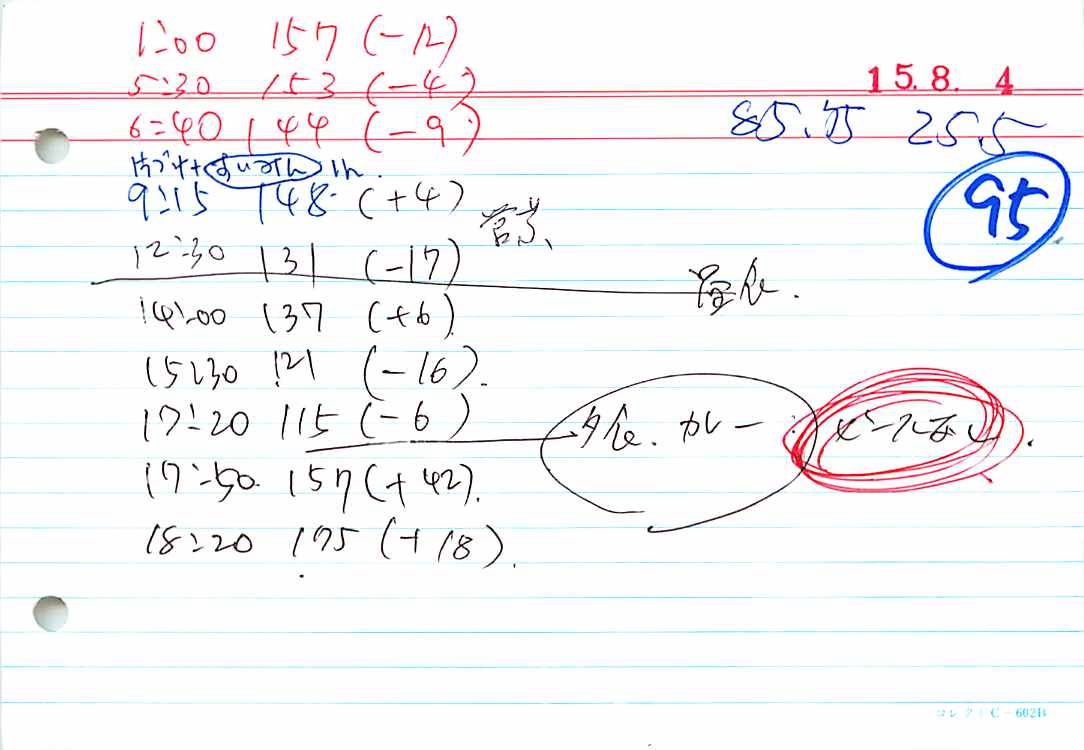 1:00 157 (-12)
5:30 153 (-4)
15.8. 4
6:40 144 (-9)
85.75 25.5
95
9:15 148 (+4)
12:30 131 (-17)
昼食.
14:00 137 (+6)
15:30 121 (-16).
17:20 115 (-6) 夕食. カレー
17:50. 157 (+42).
18:20 175 (+18).
コレクト C-602B